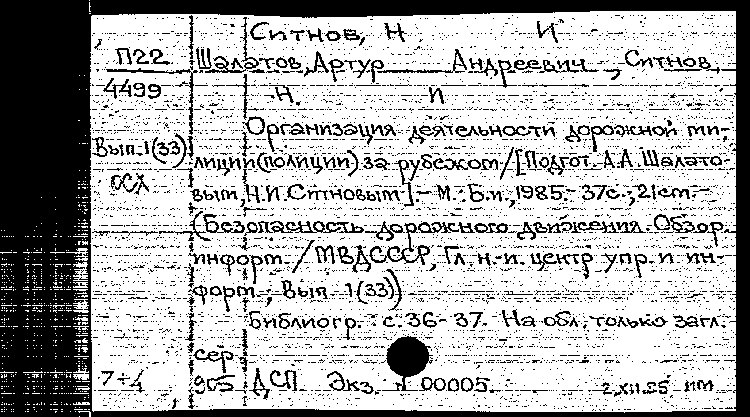 Ситнов, Н И
П22 Шалатов, Артур Андреевич, Ситнов,
4499 Н. И
Организация деятельности дорожной ми-
Вып. 1(33) лиции (полиции) за рубежом / [Подгот. А.А. Шалато-
ОСХ вым, Н.И. Ситновым]. - М.: Б.и., 1985. - 37с.; 21см. -
(Безопасность дорожного движения. Обзор.
информ. / МВД СССР, Гл. н.-и. центр упр. и ин-
форм.; Вып. 1(33))
Библиогр.: с. 36-37. На обл. только загл.
сер.
7÷4 905 ДСП. Экз. N 00005.